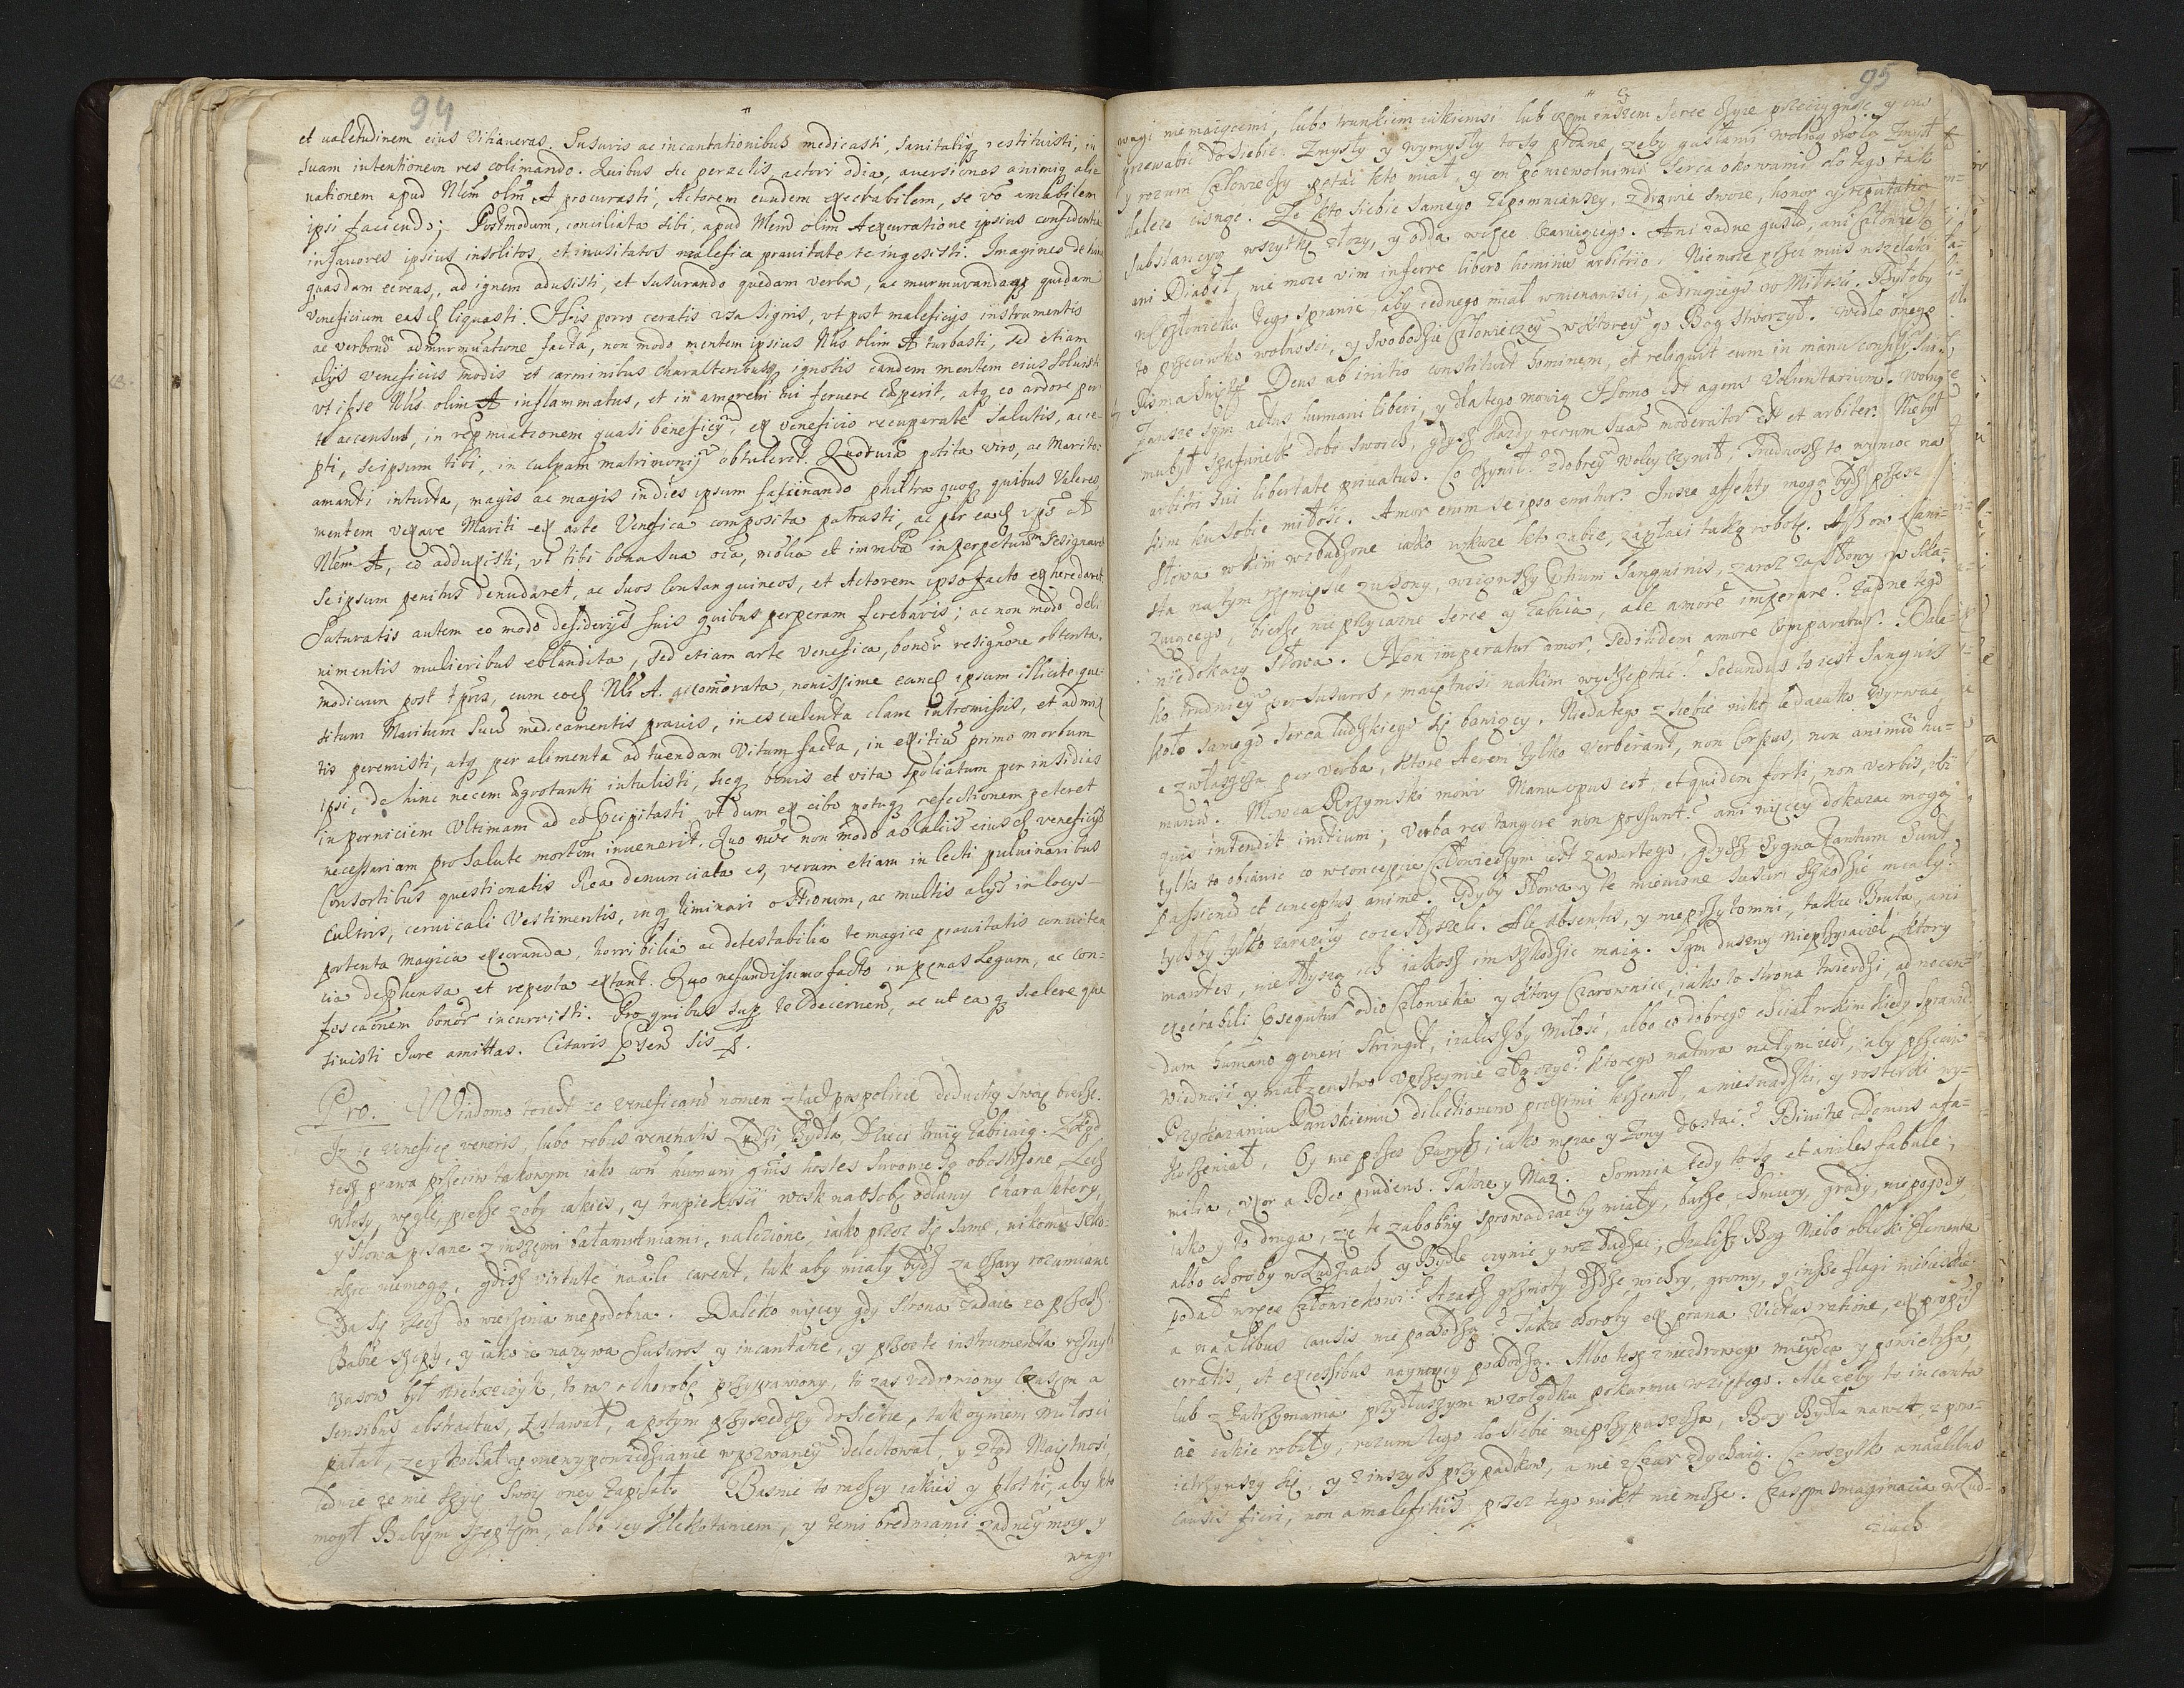 94
et ualetudinem eius vitiaveras. Susuris ac incantationibus medicasti, sanitatiq restituisti, in
suam intentionem res colimando. Quibus sic peractis, actori odia, auersiones animiq alie
nationem apud Nlem olim A procurasti, Actorem eundem execrabilem, se vo amabilem
ipsi faciendo; Postmodum, conciliata sibi, apud Nlem olim A ex curatione ipsius confidentia
in fauores ipsius insolitos, et inusitatos malefica prauitate te ingesisti. Imagines
quasdam cereas, ad ignem adusisti, et susurando quedam verba, ac murmurando quidam
veneficium easd liquasti. His porro ceratis usa signis, vt post maleficijs instrumentis
ac verborum admurmuratione facta, non modo mentem ipsius Nlis olim A turbasti, sed etiam
alijs veneficiis modis et carminibus charakteribusq ignotis eandem mentem eius soluisti
vt ipse Nlis olim A inflammatus, et in amorem tui feruere ceperit, atq eo ardore per
te accensus, in repmiationem quasi beneficij, ex veneficio recuperate salutis, acce-
pti, seipsum tibi, in culpam matrimonij obtulerit. Quo tuis potita viro, ac Marito
amanti inturta, magis ac magis indies ipsum fascinando philtra quoq quibus valeres
mentem vexare Mariti ex arte venefica composita patrasti, ac per ead ips A
Nlem A, eo adduxisti, vt tibi bona sua oia, mobilia et immbia in perpetuum resignaret
Se ipsum penitus denudaret, ac suos consanguineos, et Actorem ipso facto exheredaret.
Saturatis autem eo modo desiderijs suis quibus perperam ferebaris; ac non modo deli
nimentis mulieribus eblandita, sed etiam arte venefica, bonor resignone obtenta,
modicum post tpris, cum eod Nli A. acomorata, nouissime eund ipsum illicite que
situm Maritum suum medicamentis prauis, in esculenta clam intromissis, et admix
tis peremisti, atq per alimenta ad tuendam vitam facta, in exitium primo morbum
ipsi, de hinc necem egrotanti intulisti, sicq bonis et vita spoliatum per insidias
in perniciem vltimam ad eo precipitasti, vt dum ex cibo potuq refectionem peteret
necessariam pro salute mortem inuenerit. Quo nre non modo ab alijs eiusd veneficijs
Consortibus questionatis Rea denunciata es, verum etiam in lecti puluinaribus
culitris, ceruicali vestimentis, inq liminari ostiorum, ac multis alijs in locys
portenta magica execranda, horribilia ac detestabilia te magice prauitatis conuicta
cia dephensa et reperta extant. Quo nefandissimo facto in penas Legum, ac con-
fiscaonem bonor incurristi. Pro quibus sup te decernend, ac ut ea q scelere que
siuisti Jure amittas. Citaris prsens sis p.
Pro: Wiadomo to iest ze veneficarum nomen ztąd pospolicie deduktię swoię bierze.
Iz te venefice veneris, lubo rebus venenatis Ludzi Bydła, Dzieci truią zabiiaią. Zkąd
tesz prawa przeciw takowym iako con humani gnis hostes surowie są obostrzone, Lecz
Włosy, węgle, piersze zoby iakies, y trupie kosci wosk na osobę odlany charaktery,
y słowa pisane z inszemi bałamutniami, nalezione, iako przez się same, nikomu szko-
dzic niemogą, gdisz virtute naali carent, tak aby miały bydz za czary rozumiane
Da się rzecz do wierzenia niepodobna. Daleko więcey gdy strona zadaie ze przesz
Babie szepty, y iako ie nazywa susuros y incantatie, y przez te instrumenta rożnych
czasow był Nieboszczyk, to raz o chorobę przyprawiony, to zas vzdrowiony czasem a
sensibus abstractus, zostawał, a potym przyszedszy do siebie, tak ogniem miłosci
pałał, ze y kochał sie w niey pozwaney delectował, y ztąd Maiętnosi
ledwie ze nie szyię swoię oney zapisał. Basnie to raczey iakies y plotki, aby kto
mogł Babym szeptem, albo iey klekotaniem, y temi bredniami zadney mocy y
wagi
95
wagi nie maiącemi, lubo trunkiem iakiemsi lub czym inszem serce czyie przeciągnąc y ono
przewabic do siebie. Zmysły y wymysły to są prozne, zeby gusłami wolnę wolą zmysł
y rozum człowieczy pętac kto miał, y on poniewolnemi serca okowami do tego tak
dalece ciągnąc. Ze kto siebie samego zapomniawszy, zdrowie swoie, honor y reputatia
substancyą wszytkę złozy, y odda w ręce czaruiącego. Ani zadne gusło, ani człowiek
ani Diabeł, nie moze vim inferre libero hominis arbitrio. Niemoze przez mus wszelaki
w człowieku tego sprawic aby iednego miał w nienawisci, a drugiego w Miłosci. Byłoby
to przeciwko wolnosci, y swobodzie człowieczey w ktorey go Bog stworzył. Wedle onego
Pisma Swiętego Deus ab initio constituit hominem, et reliquit eum in manu consilij sui,
Zawsze sąm actus humani liberi, y dla tego mowią Homo est agens voluntarium. Wolny
mu był szafunek dobr swoich, gdysz kazdy rerum suar moderator est et arbiter. Niebył
arbitri sui libertate priuatus. Co czynił zdobrey woley czynił, Trudnosz to wymoc na
kim ku sobie miłosc. Amor enim se ipso emitur. Insze affekty mogą bydz przez
słowa w kim wzbudzone iako w kure kto zabie, zapłaci taką robotę.
sta na tym rzemięsle zuchony, wziąwszy Ostium sanguinis, zaraz za słowy w ska-
zuiącego, bierze nieprzyiazne serce y zabiia, ale amore imperare? zadne tego
niedokazą słowa. Non imperatur amor, sed itidem amore comparatur. Dale-
ko trudniey per susuros, maiętnosi na kim wyszeptac. Secundus to iest sanguis
koło samego serca ludzkiego się bawiący. Nieda tego z siebie nikt ledaiako wyrwac
a zwłaszcza per verba, ktore Aerem tylko verberant, non Corpus, non animum hu-
manum. Mowca Rzymski mowi Manu opus est, et quidem forti, non verbis, vbi
quis intendit initium; Verba res tangere non possunt? ani więcey dokazac mogą
tylko to obiawic co w koncepcie człowieczym iest zawartego, gdysz sygna tantum sunt
passionum et conceptus anime. Gdyby słowa y te mienione susuri szkodzic miały?
tych by tylko zaraziły co ie słyszeli. Ale absentes, y nieprzytomni, takze Bruta, ani
mantes, nie słyszą ich iakosz im szkodzic maią. Sąm duszny nieprzyiaciel, ktory
execrabili psequitur odio człowieka y ktory czarownice, iako to strona twierdzi, ad nocen-
dum humano generi stringit, izalisz by miłosc, albo co dobrego chciał w kim kiedy sprawic
wiednosc y małzenstwo vprzeymie złączyc? ktorego natura na tym iest, aby przeciw
Przykazaniu Panskiemu dilectionem proximi kszenał, a niesnadzki, y rosterki wy-
korzeniał, By nie przez czarysz iako męza y zony dostac? Divitie Domus a fa-
milia, vxor a Deo prudens. Takze y Maz. Somnia tedy to są et aniles fabule,
iako y to druga, ze te zabobny sprowadzac by miały, burze, chmury, grady, niepogody
albo choroby w ludziach y Bydle czynic y wzbudzac, Izalisz Bog Niebo obłoki Elementa
podał w ręce człowiekowi? Azasz grzmoty dzdze wichry, gromy, y insze flagi niebieskie
a naalibus causis niepochodzą? Takze choroby ex praua victus ratione, ex proprijs
erratis, et excessibus naywięcy pochodzą. Albo tesz z niezdrowego mieysca y powietrza,
lub z zatrzymania przydłuszym w zołądku pokarmu wziętego. Ale zeby to incanta
tie iakie robiły, rozum tego do siebie nieprzypuszcza, Bo y Bydła nawet, z pow-
ietrzywszy się, y z inszych przypadkow, a nie z czar zdychaią. Co wszytko a naalibus
causis fieri, non a maleficijs przez tego nikt nie moze. Czasem imaginacia w lud-
ziach